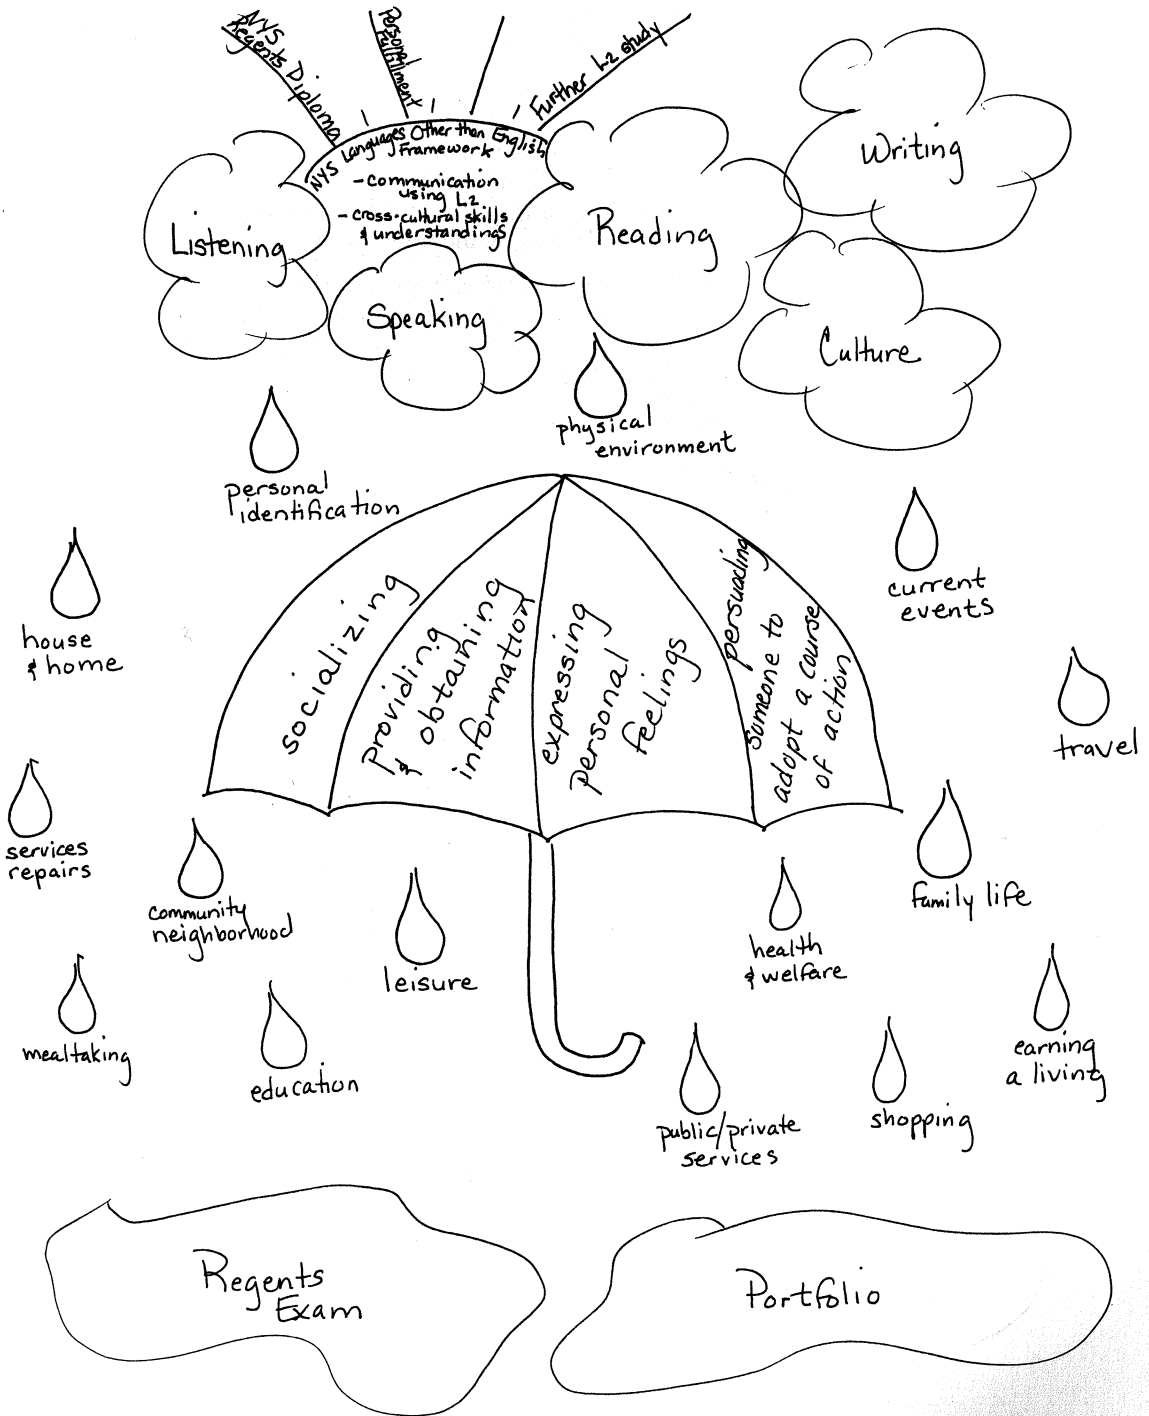 NYS
Regents Diploma
Personal
Fulfillment
Further L2 study
NYS Languages Other than English
Framework
- communication
using L2
- cross-cultural skills
& understandings
Listening
Speaking
Reading
Writing
Culture
physical
environment
personal
identification
current
events
house
& home
socializing
providing
& obtaining
information
expressing
personal
feelings
persuading
someone to
adopt a course
of action
travel
services
repairs
community
neighborhood
leisure
health
& welfare
family life
mealtaking
education
public/private
services
shopping
earning
a living
Regents
Exam
Portfolio